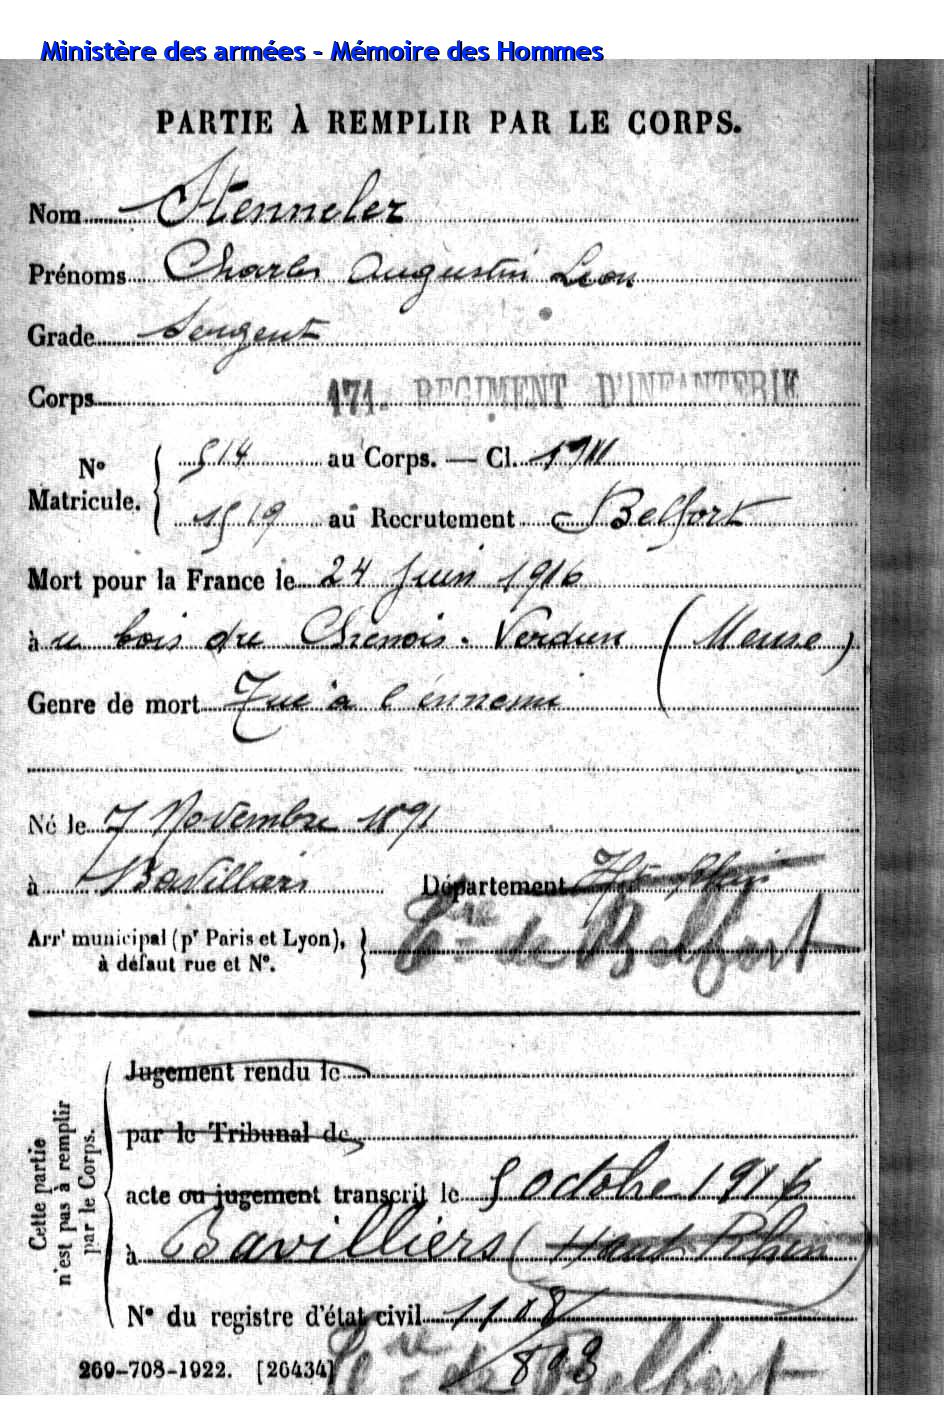 Ministère des armées - Mémoire des Hommes
PARTIE À REMPLIR PAR LE CORPS.
Nom Henneler
Prénoms Charles Augustin Léon
Grade Sergent
Corps 171e REGIMENT D'INFANTERIE
N° Matricule. 514 au Corps. — Cl. 1911
1519 au Recrutement Belfort
Mort pour la France le 24 Juin 1916
à u bois du Chenois. Verdun (Meuse)
Genre de mort Tué à l'ennemi
Né le 7 Novembre 1891
à Bavilliers Département Ht Rhin
Arrt municipal (pr Paris et Lyon), à défaut rue et N°. Tre de Belfort
Cette partie n'est pas à remplir par le Corps.
Jugement rendu le
par le Tribunal de
acte ou jugement transcrit le 5 octobre 1916
à Bavilliers (Haut Rhin)
N° du registre d'état civil 1108/
893
Tre de Belfort
269-708-1922. [26434]